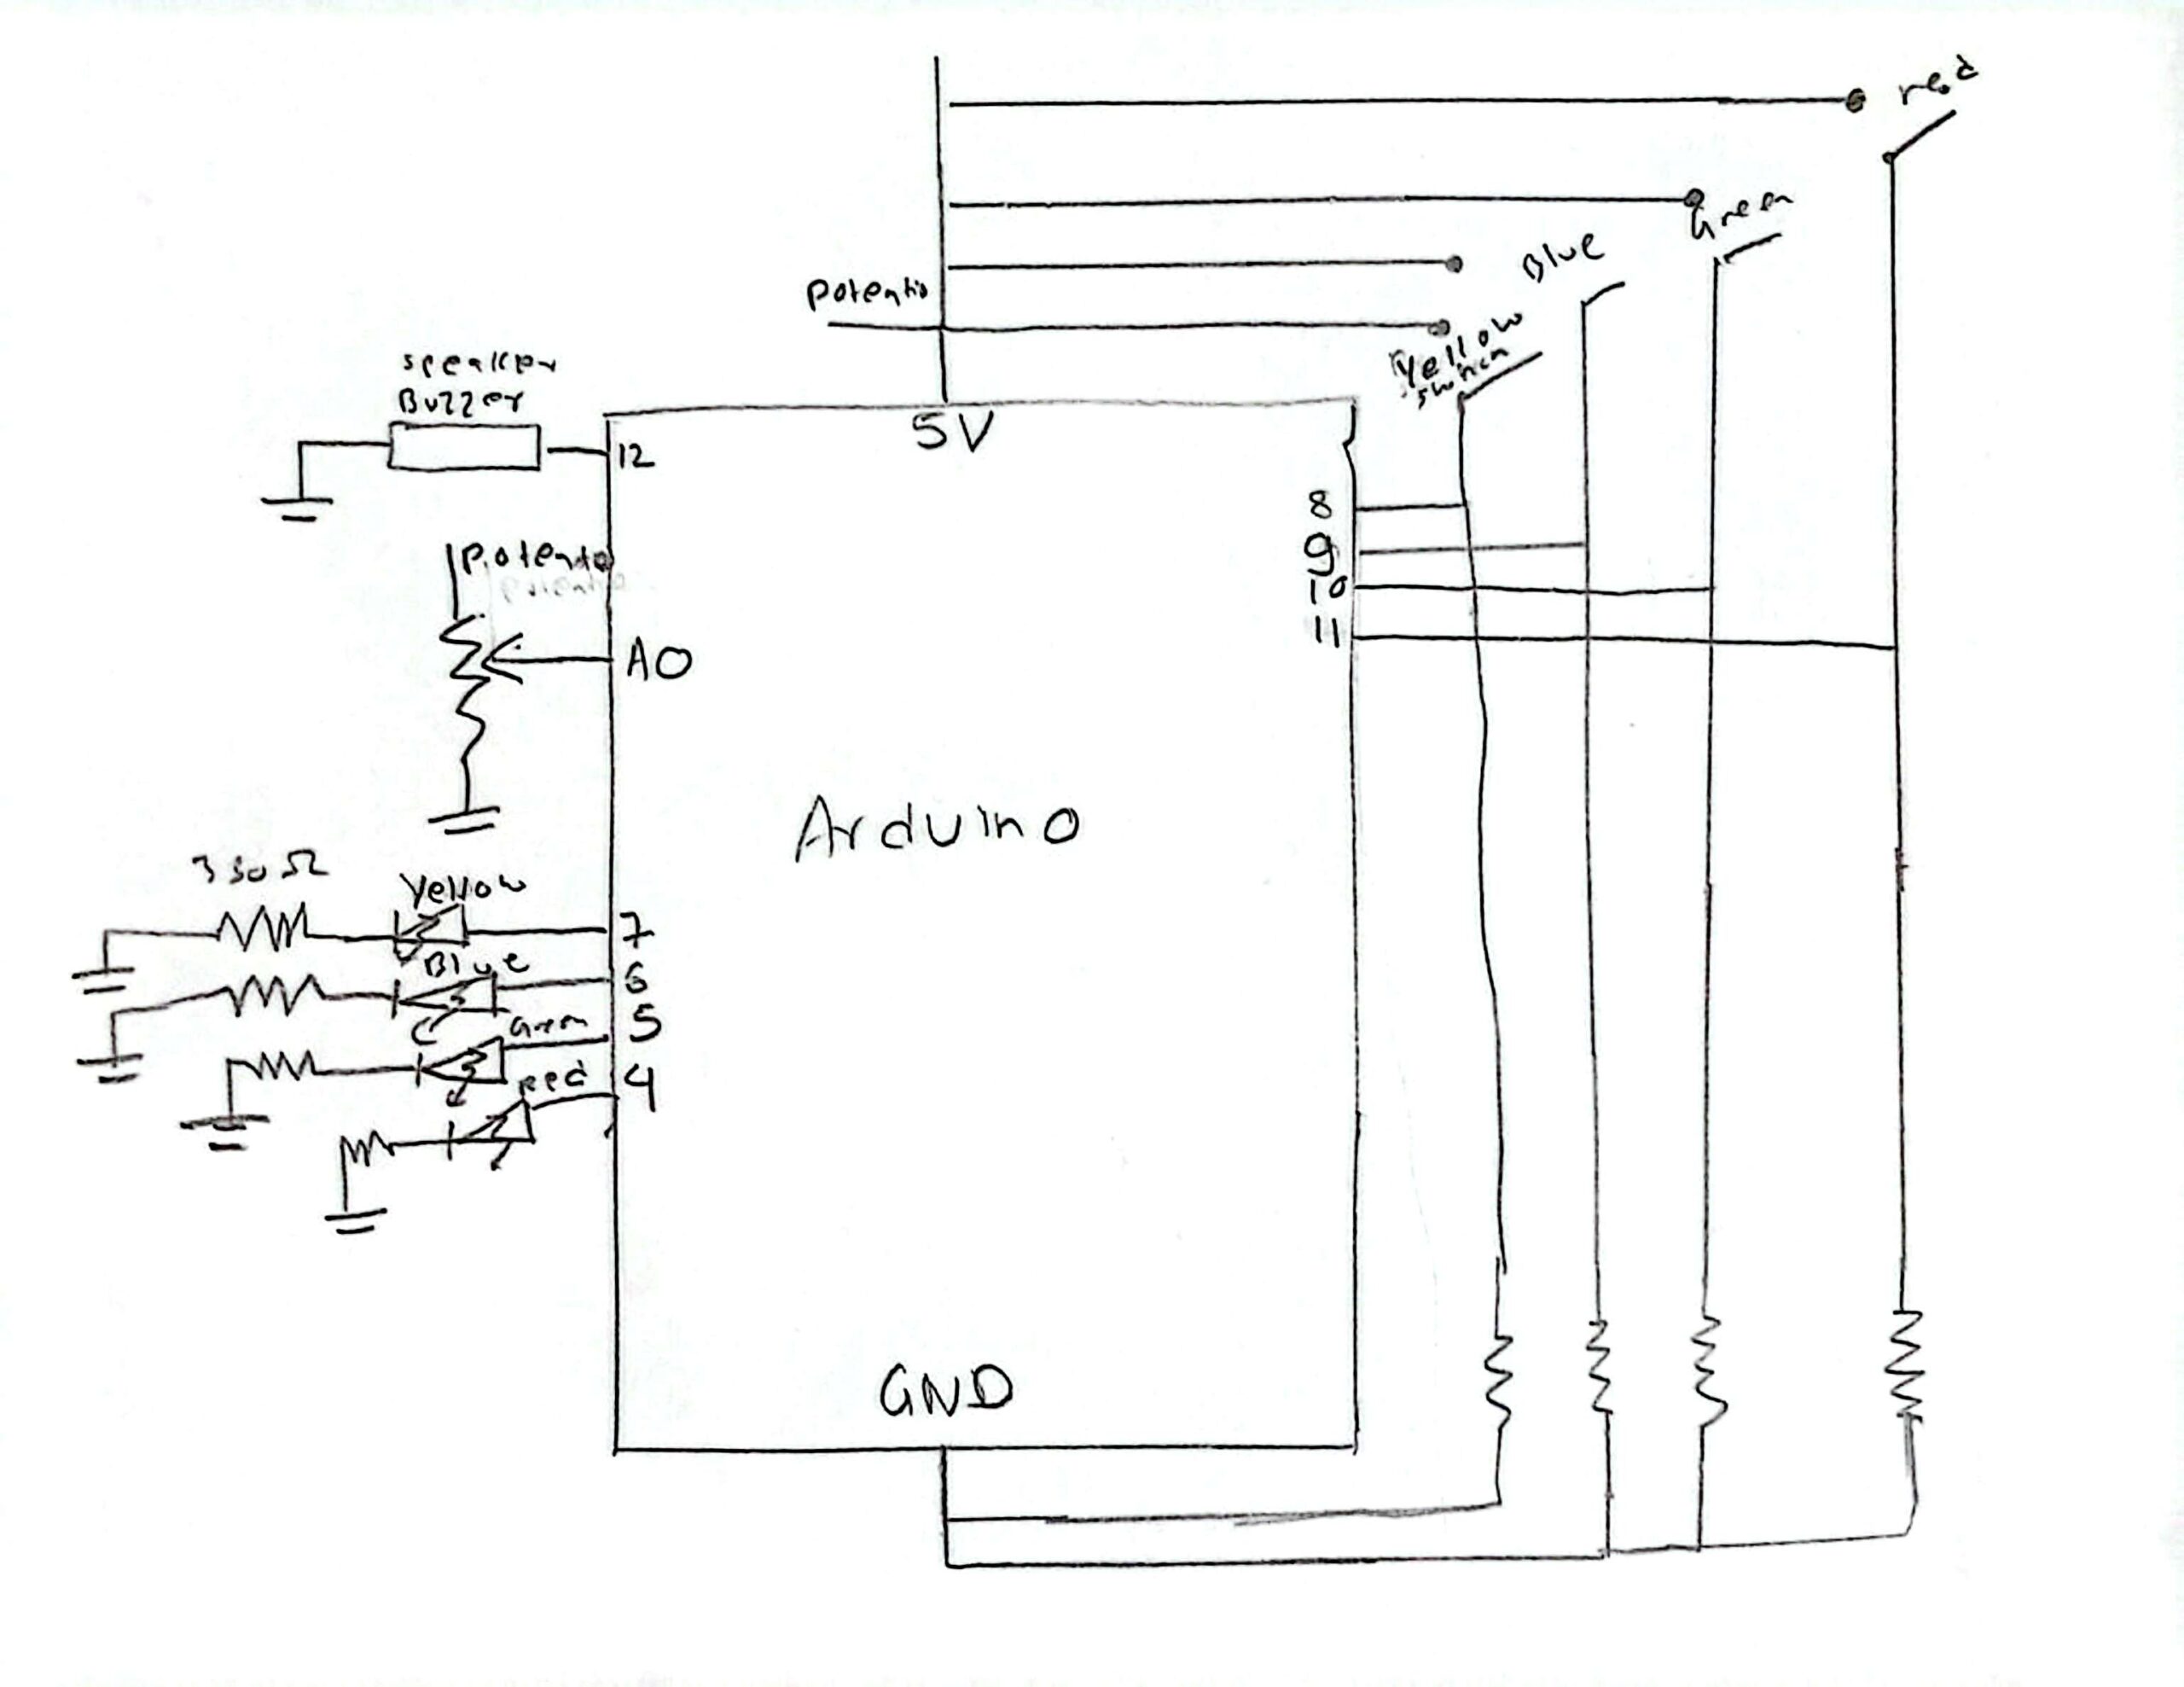 red
Green
Blue
Potentio
Yellow
switch
speaker
Buzzer
5V
12
8
Potentio
9
10
11
A0
Arduino
330Ω
Yellow
7
Blue
6
Green
5
Red
4
GND